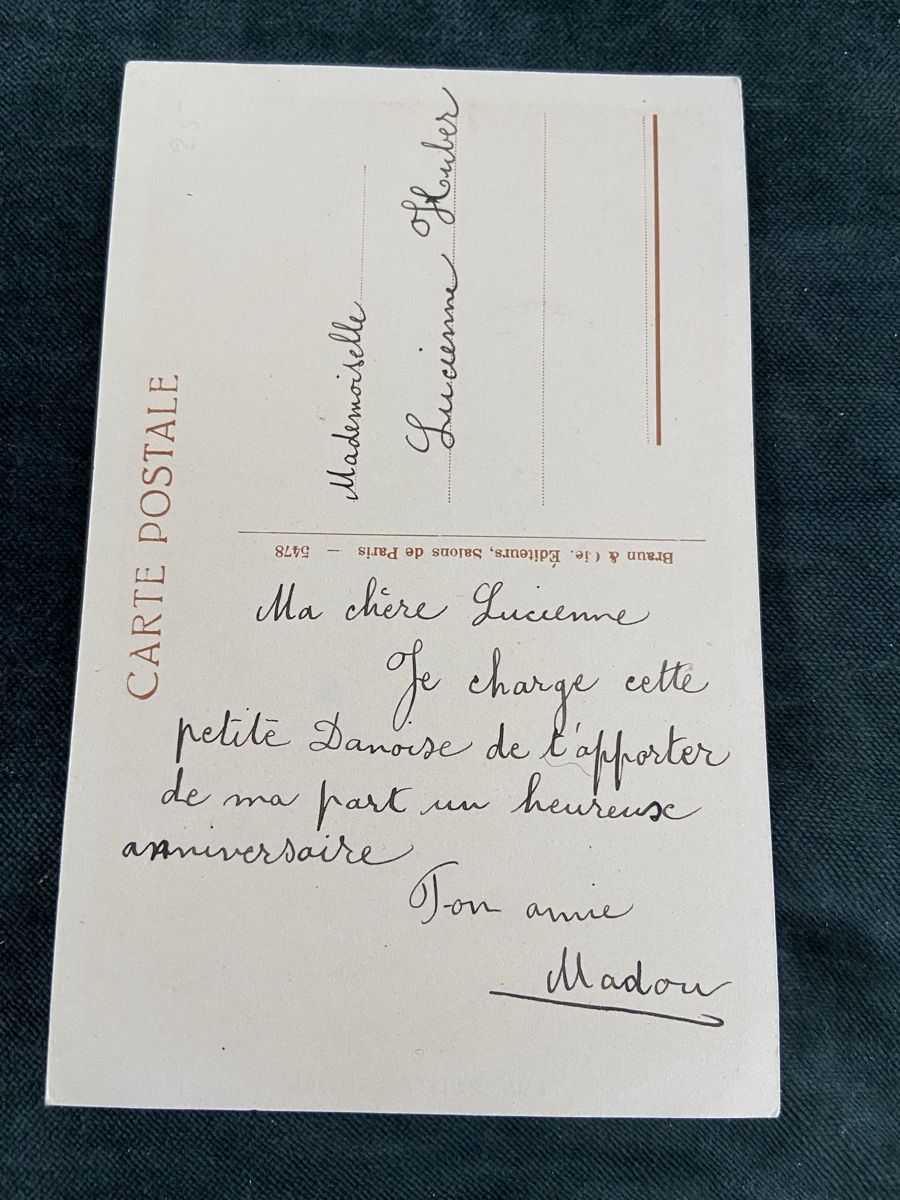 CARTE POSTALE
Mademoiselle
Lucienne Huber
Braun & Cie. Éditeurs, Salons de Paris — 5478
Ma chère Lucienne
Je charge cette
petite Danoise de t'apporter
de ma part un heureux
anniversaire
Ton amie
Madou